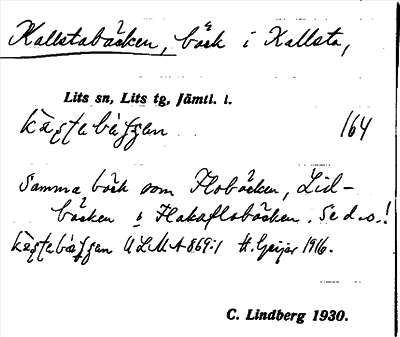 Kallstabäcken, bäck i Kallsta,
Lits sn, Lits tg, Jämtl. l.
164
Samma bäck som Flobäcken, Lid-
bäcken o Hökaflobäcken. Se d.o.!
ULMA 869:1 H. Geijer 1916.
C. Lindberg 1930.